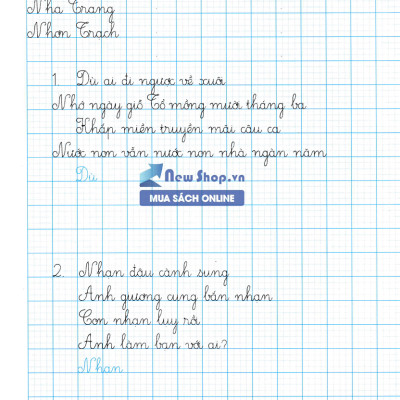 Nha Trang
Nhơn Trạch
1. Dù ai đi ngược về xuôi
Nhớ ngày giỗ Tổ mồng mười tháng ba
Khắp miền truyền mãi câu ca
Nước non vẫn nước non nhà ngàn năm
Dù
New Shop.vn
MUA SÁCH ONLINE
2. Nhạn đậu cành sung
Anh giương cung bắn nhạn
Con nhạn luỵ rồi
Anh làm bạn với ai?
Nhạn